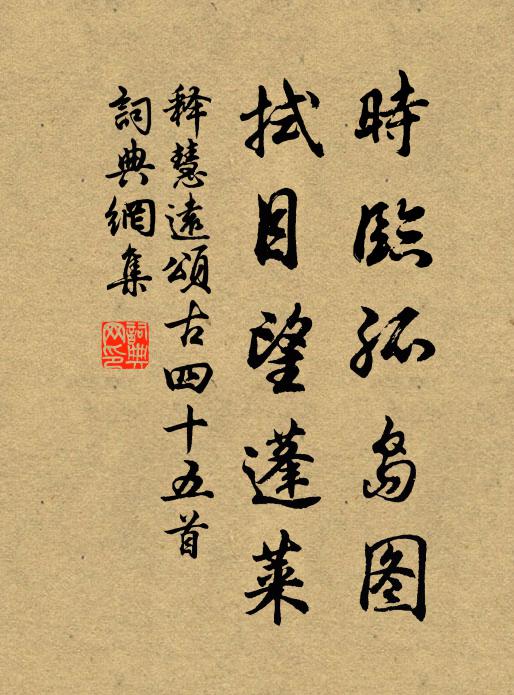 時臨孤島图
拭目望蓬莱
释慧遠頌古四十五首
詞典網集
詞典网印